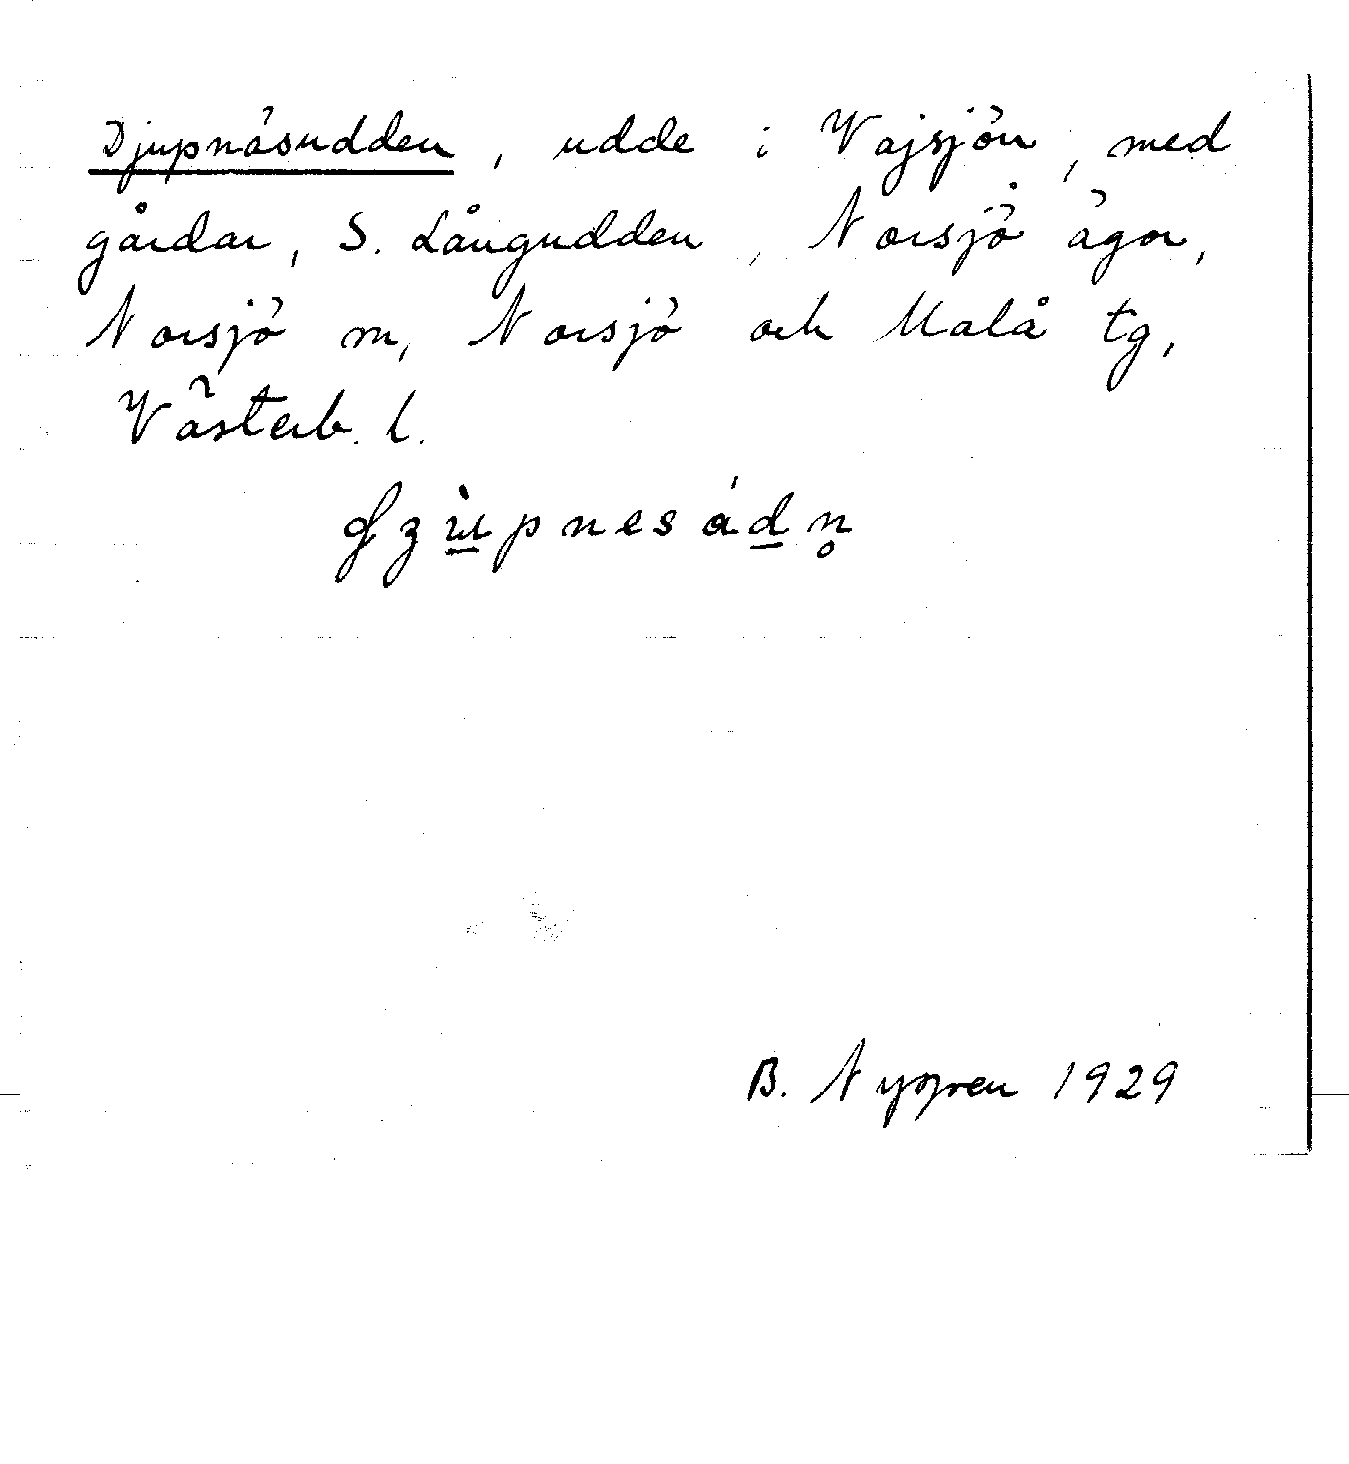 Djupnäsudden, udde i Vajsjön, med
gårdar, S. Långudden, Norsjö ägor,
Norsjö sn, Norsjö och Malå tg,
Västerb. l.
B. Nygren 1929